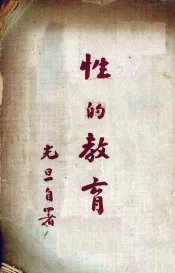 性的教育
元旦自署